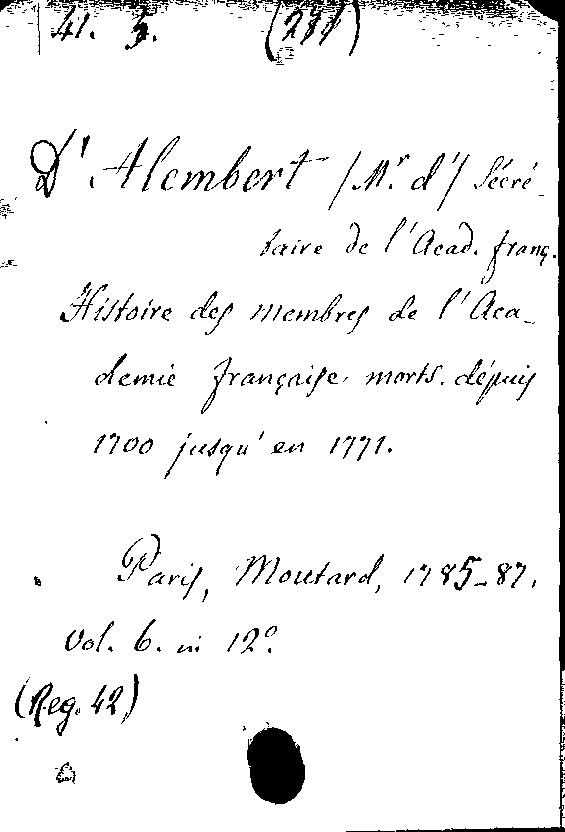 41. 5. (231)
D'Alembert /Mr. d'/ Sécré-
taire de l'Acad. franç.
Histoire des membres de l'Aca-
demie française morts. dépuis
1700 jusqu'en 1771.
Paris, Moutard, 1785-87.
Vol. 6. in 12º.
(Reg. 42)